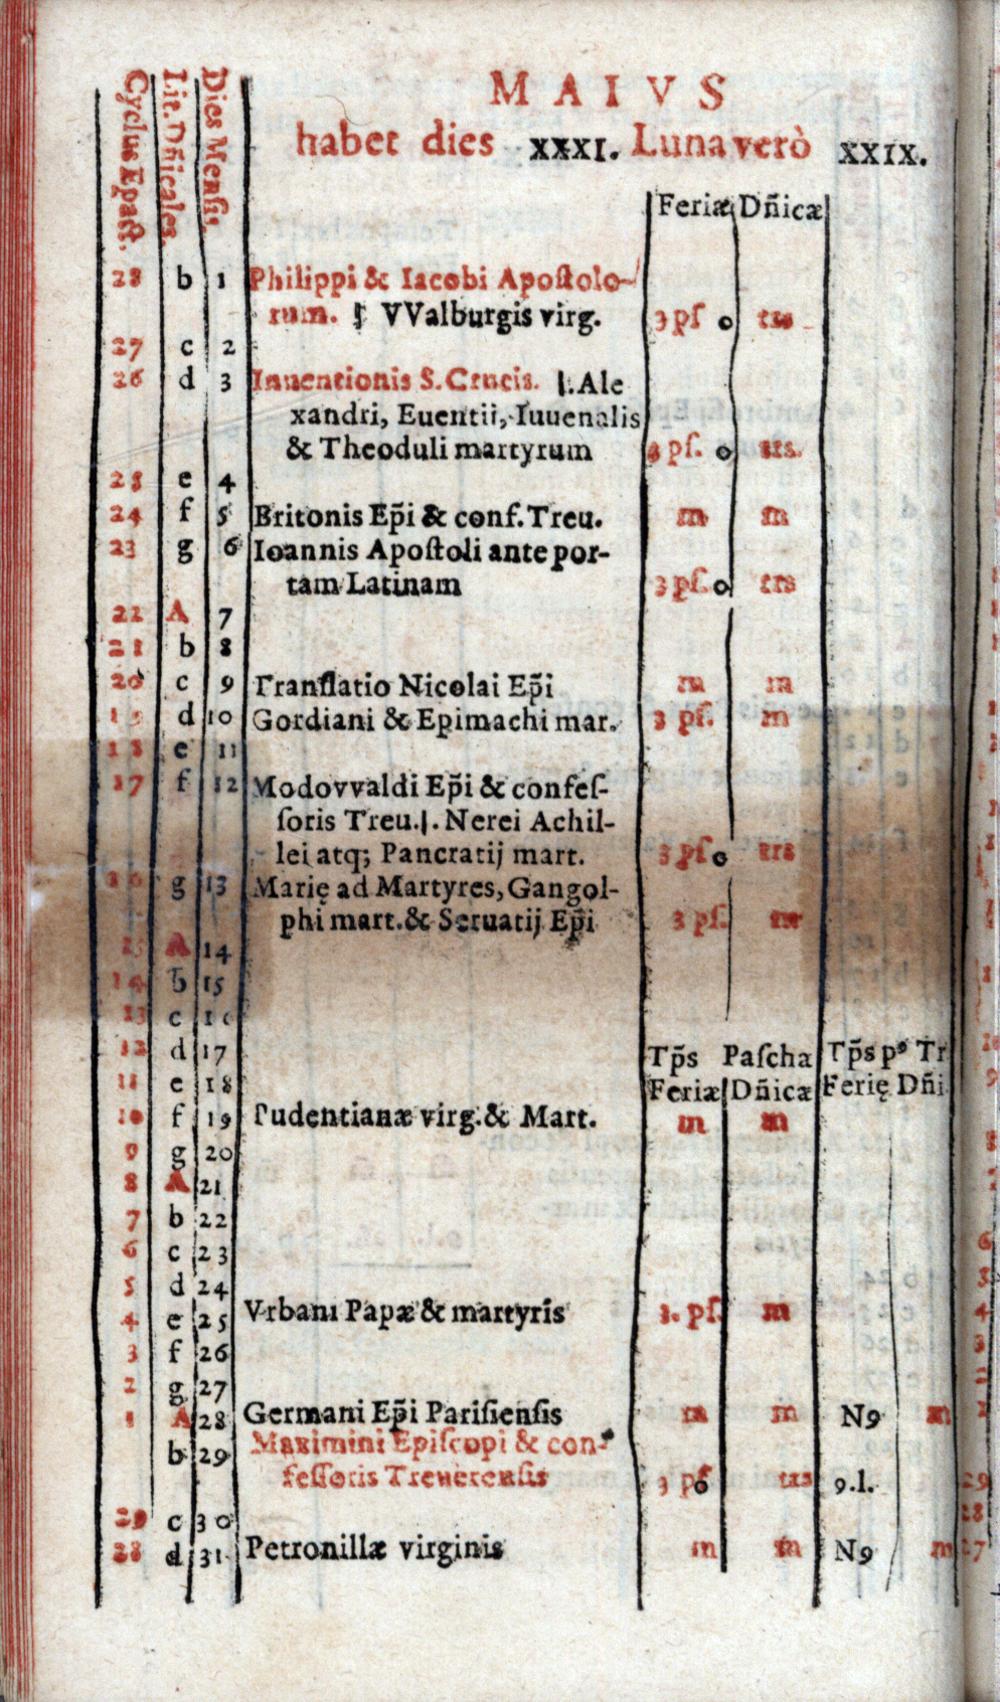 MAIVS
habet dies XXXI. Luna verò XXIX.
Cyclus Epact. Lit. Dñicales. Dies Mensis.
Feriæ Dñicæ
28 b 1 Philippi & Iacobi Apoſtolo-
rum. VValburgis virg. 3 pſ o trs
27 c 2
26 d 3 Inuentionis S. Crucis. |. Ale
xandri, Euentii, Iuuenalis
& Theoduli martyrum 3 pſ. o trs.
25 e 4
24 f 5 Britonis Ep̃i & conf. Treu. m m
23 g 6 Ioannis Apoſtoli ante por-
tam Latinam 3 pſ. o trs
22 A 7
21 b 8
20 c 9 Tranſlatio Nicolai Ep̃i m m
19 d 10 Gordiani & Epimachi mar. 3 pſ. m
18 e 11
17 f 12 Modovvaldi Ep̃i & confeſ-
ſoris Treu. |. Nerei Achil-
lei atq; Pancratij mart. 3 pſ o trs
16 g 13 Marię ad Martyres, Gangol-
phi mart. & Seruatij Ep̃i 3 pſ. m
15 A 14
14 b 15
13 c 16
12 d 17 Tp̃s Paſcha Tp̃s pꝰ Tr
11 e 18 Feriæ Dñicæ Ferię Dñi
10 f 19 Pudentianæ virg. & Mart. m m
9 g 20
8 A 21
7 b 22
6 c 23
5 d 24
4 e 25 Vrbani Papæ & martyris 3. pſ. m
3 f 26
2 g 27
1 A 28 Germani Ep̃i Pariſienſis m m N9 m
b 29 Maximini Epiſcopi & con-
feſſoris Treuerenſis 3 pſ o trs 9.l.
29 c 30
28 d 31 Petronillæ virginis m m N9 m